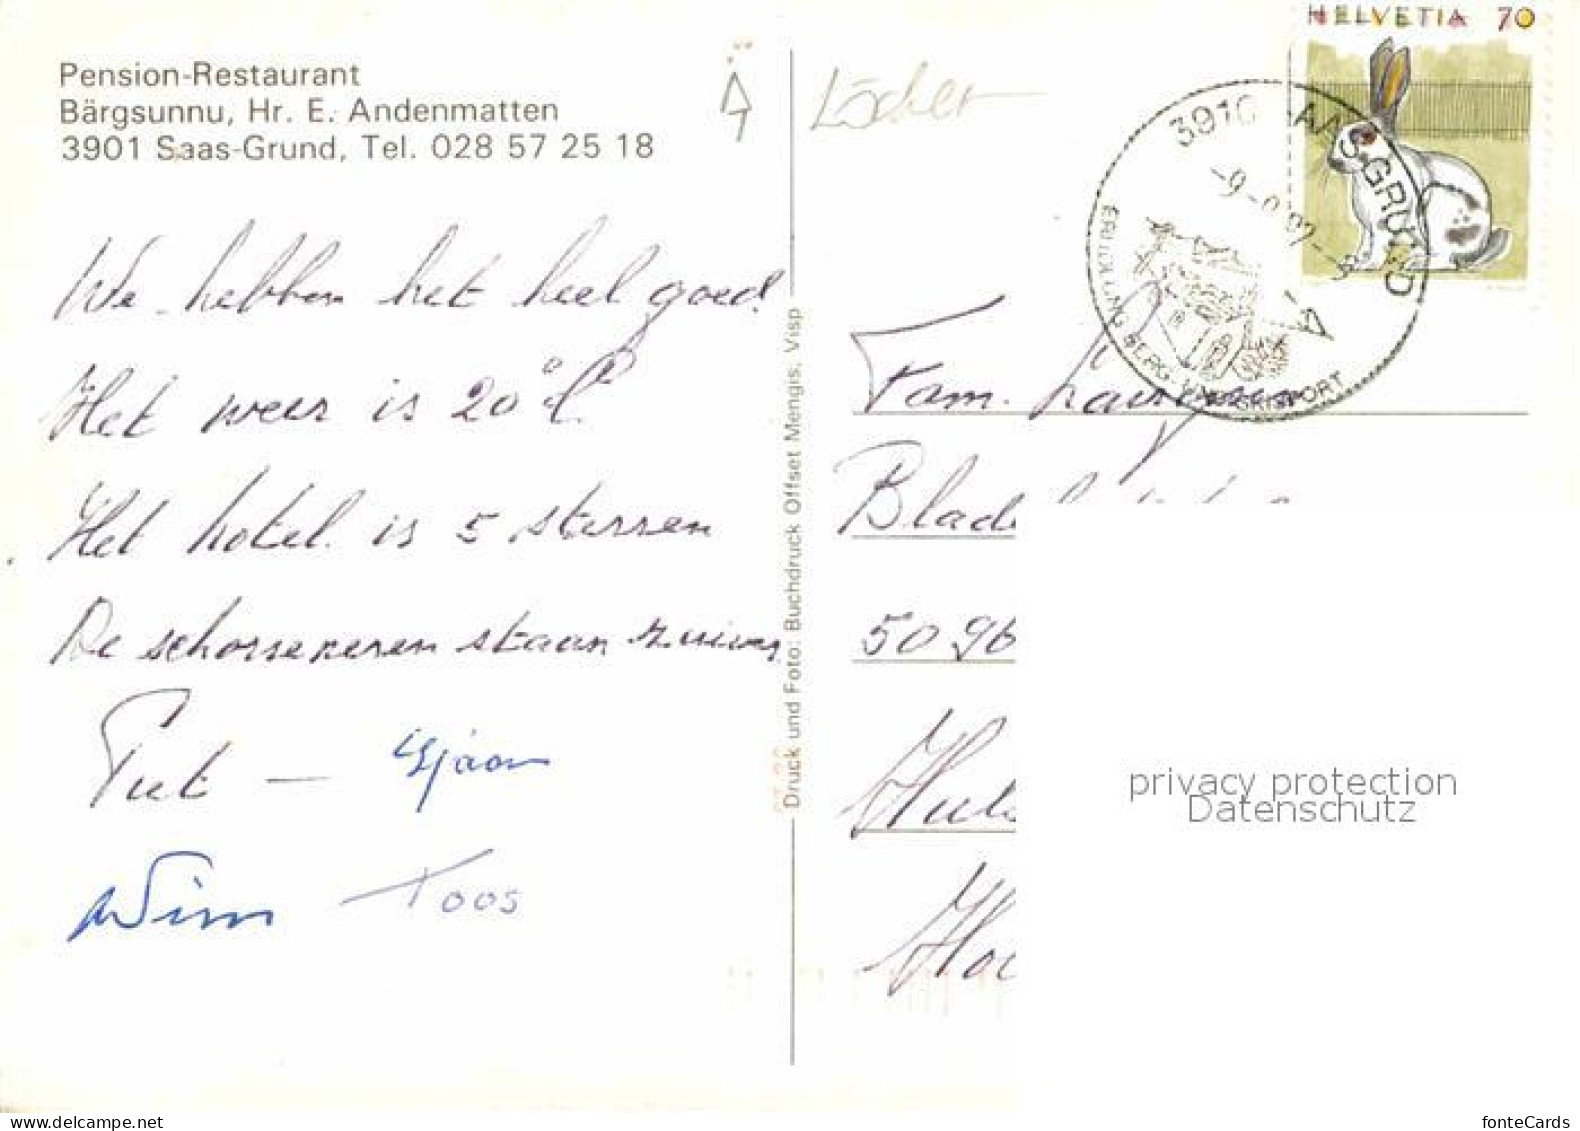 Pension-Restaurant
Bärgsunnu, Hr. E. Andenmatten
3901 Saas-Grund, Tel. 028 57 25 18
We hebben het heel goed
Het weer is 20° C
Het hotel is 5 sterren
De schorseneren staan zuiver
Piet — Sjaan
Wim Toos
Druck und Foto: Buchdruck Offset Mengis, Visp
Löcher
HELVETIA 70
3910 SAAS-GRUND
BERG- WINTERSPORT
Fam.
Blad
5096
Hul
Ho
privacy protection
Datenschutz
fonteCards